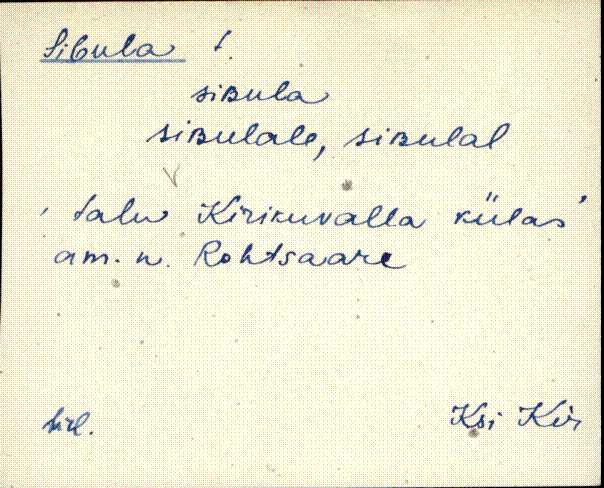 Sibula t.
siʙula
siʙulale, siʙulal
'talu Kirikuvalla külas'
am. n. Rohtsaare
Ksi Kir